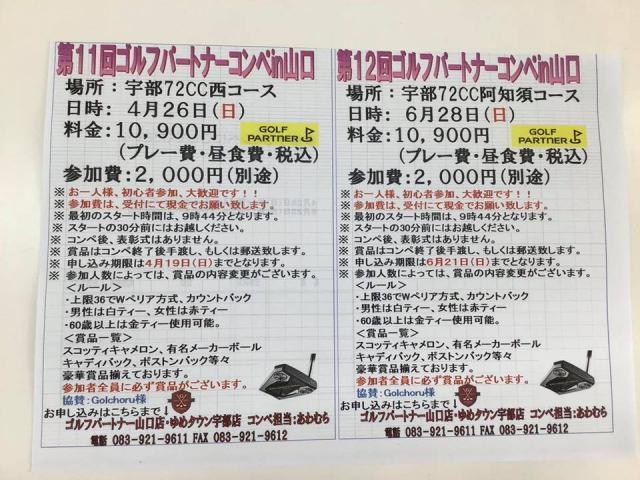 第11回ゴルフパートナーコンペin山口
場所：宇部72CC西コース
日時：4月26日(日)
料金：10,900円
GOLF
PARTNER
(プレー費・昼食費・税込)
参加費：2,000円(別途)
※ お一人様、初心者参加、大歓迎です！！
※ 参加費は、受付にて現金でお願い致します。
※ 最初のスタート時間は、9時44分となります。
※ スタートの30分前にはお越しください。
※ コンペ後、表彰式はありません。
※ 賞品はコンペ終了後手渡し、もしくは郵送致します。
※ 申し込み期限は4月19日(日)までとなります。
※ 参加人数によっては、賞品の内容変更がございます。
＜ルール＞
・上限36でWペリア方式、カウントバック
・男性は白ティー、女性は赤ティー
・60歳以上は金ティー使用可能。
＜賞品一覧＞
スコッティキャメロン、有名メーカーボール
キャディバック、ボストンバック等々
豪華賞品揃えております。
参加者全員に必ず賞品がございます。
協賛：Golchoru様
お申し込みはこちらまで↓
ゴルフパートナー山口店・ゆめタウン宇部店 コンペ担当：あわむら
電話 083-921-9611 FAX 083-921-9612
第12回ゴルフパートナーコンペin山口
場所：宇部72CC阿知須コース
日時：6月28日(日)
料金：10,900円
GOLF
PARTNER
(プレー費・昼食費・税込)
参加費：2,000円(別途)
※ お一人様、初心者参加、大歓迎です！！
※ 参加費は、受付にて現金でお願い致します。
※ 最初のスタート時間は、9時44分となります。
※ スタートの30分前にはお越しください。
※ コンペ後、表彰式はありません。
※ 賞品はコンペ終了後手渡し、もしくは郵送致します。
※ 申し込み期限は6月21日(日)までとなります。
※ 参加人数によっては、賞品の内容変更がございます。
＜ルール＞
・上限36でWペリア方式、カウントバック
・男性は白ティー、女性は赤ティー
・60歳以上は金ティー使用可能。
＜賞品一覧＞
スコッティキャメロン、有名メーカーボール
キャディバック、ボストンバック等々
豪華賞品揃えております。
参加者全員に必ず賞品がございます。
協賛：Golchoru様
お申し込みはこちらまで↓
ゴルフパートナー山口店・ゆめタウン宇部店 コンペ担当：あわむら
電話 083-921-9611 FAX 083-921-9612